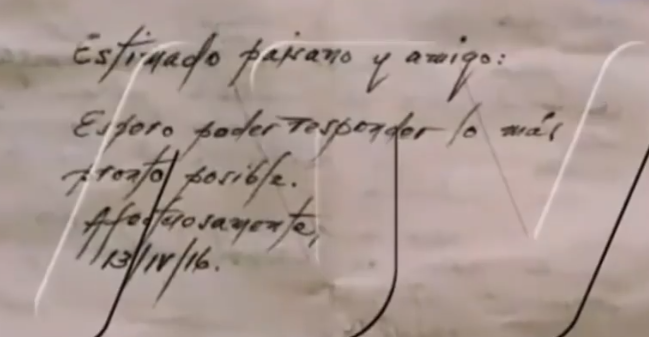 Estimado paisano y amigo:
Espero poder responder lo más
pronto posible.
Afectuosamente,
13/IV/16.